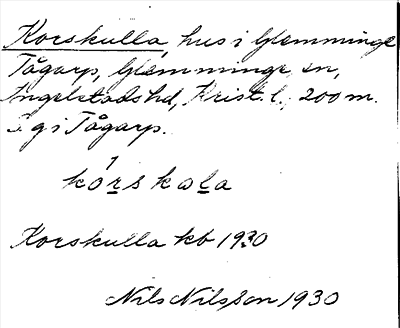 Korskulla, hus i Glemminge
Tågarp, Glemminge sn,
Ingelstads hd, Krist. l.; 200 m.
S g i Tågarp.
1
kơrskala
Korskulla kb 1930
Nils Nilsson 1930